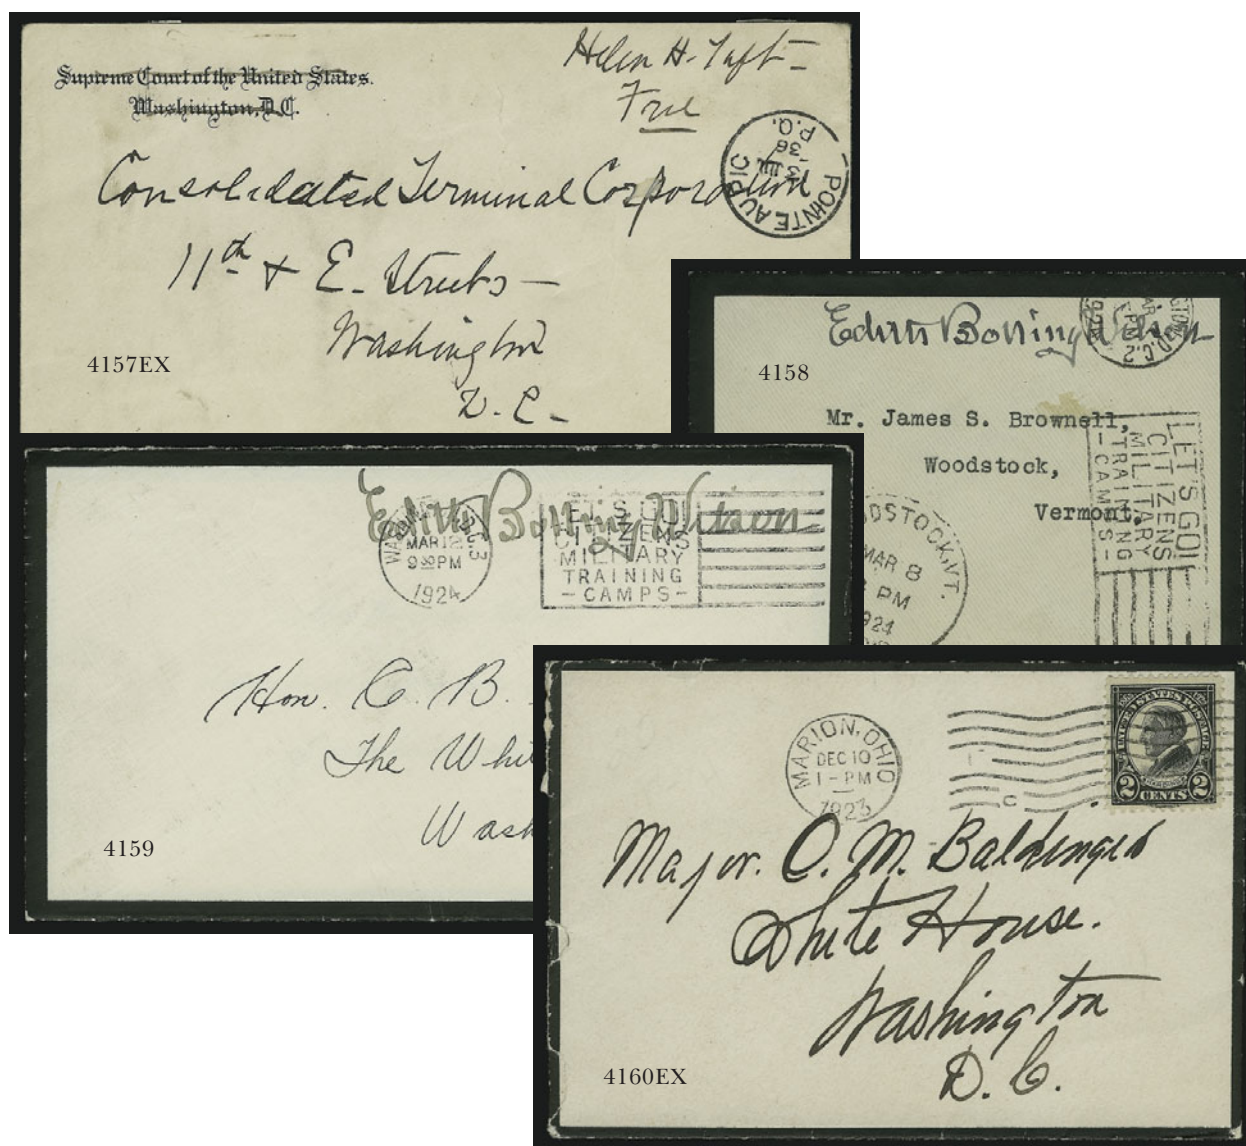 Supreme Court of the United States.
Washington, D.C.
Helen H. Taft
Free
POINTE AU PIC
13
36
P.Q.
Consolidated Terminal Corporation
11th + E. Streets
Washington
D. C.
4157EX
Edith Bolling Wilson
4158
Mr. James S. Brownell,
Woodstock,
Vermont.
LET'S GO!
CITIZENS
MILITARY
TRAINING
-CAMPS-
WOODSTOCK, VT.
MAR 8
PM
1924
Edith Bolling Wilson
MAR 12
9 30 PM
1924
LET'S GO!
CITIZENS
MILITARY
TRAINING
-CAMPS-
Hon. C. B.
The Whi
Wash
4159
MARION, OHIO
DEC 10
1-PM
1923
UNITED STATES POSTAGE
2 CENTS 2
Major. O. M. Baldinger
White House.
Washington
D. C.
4160EX